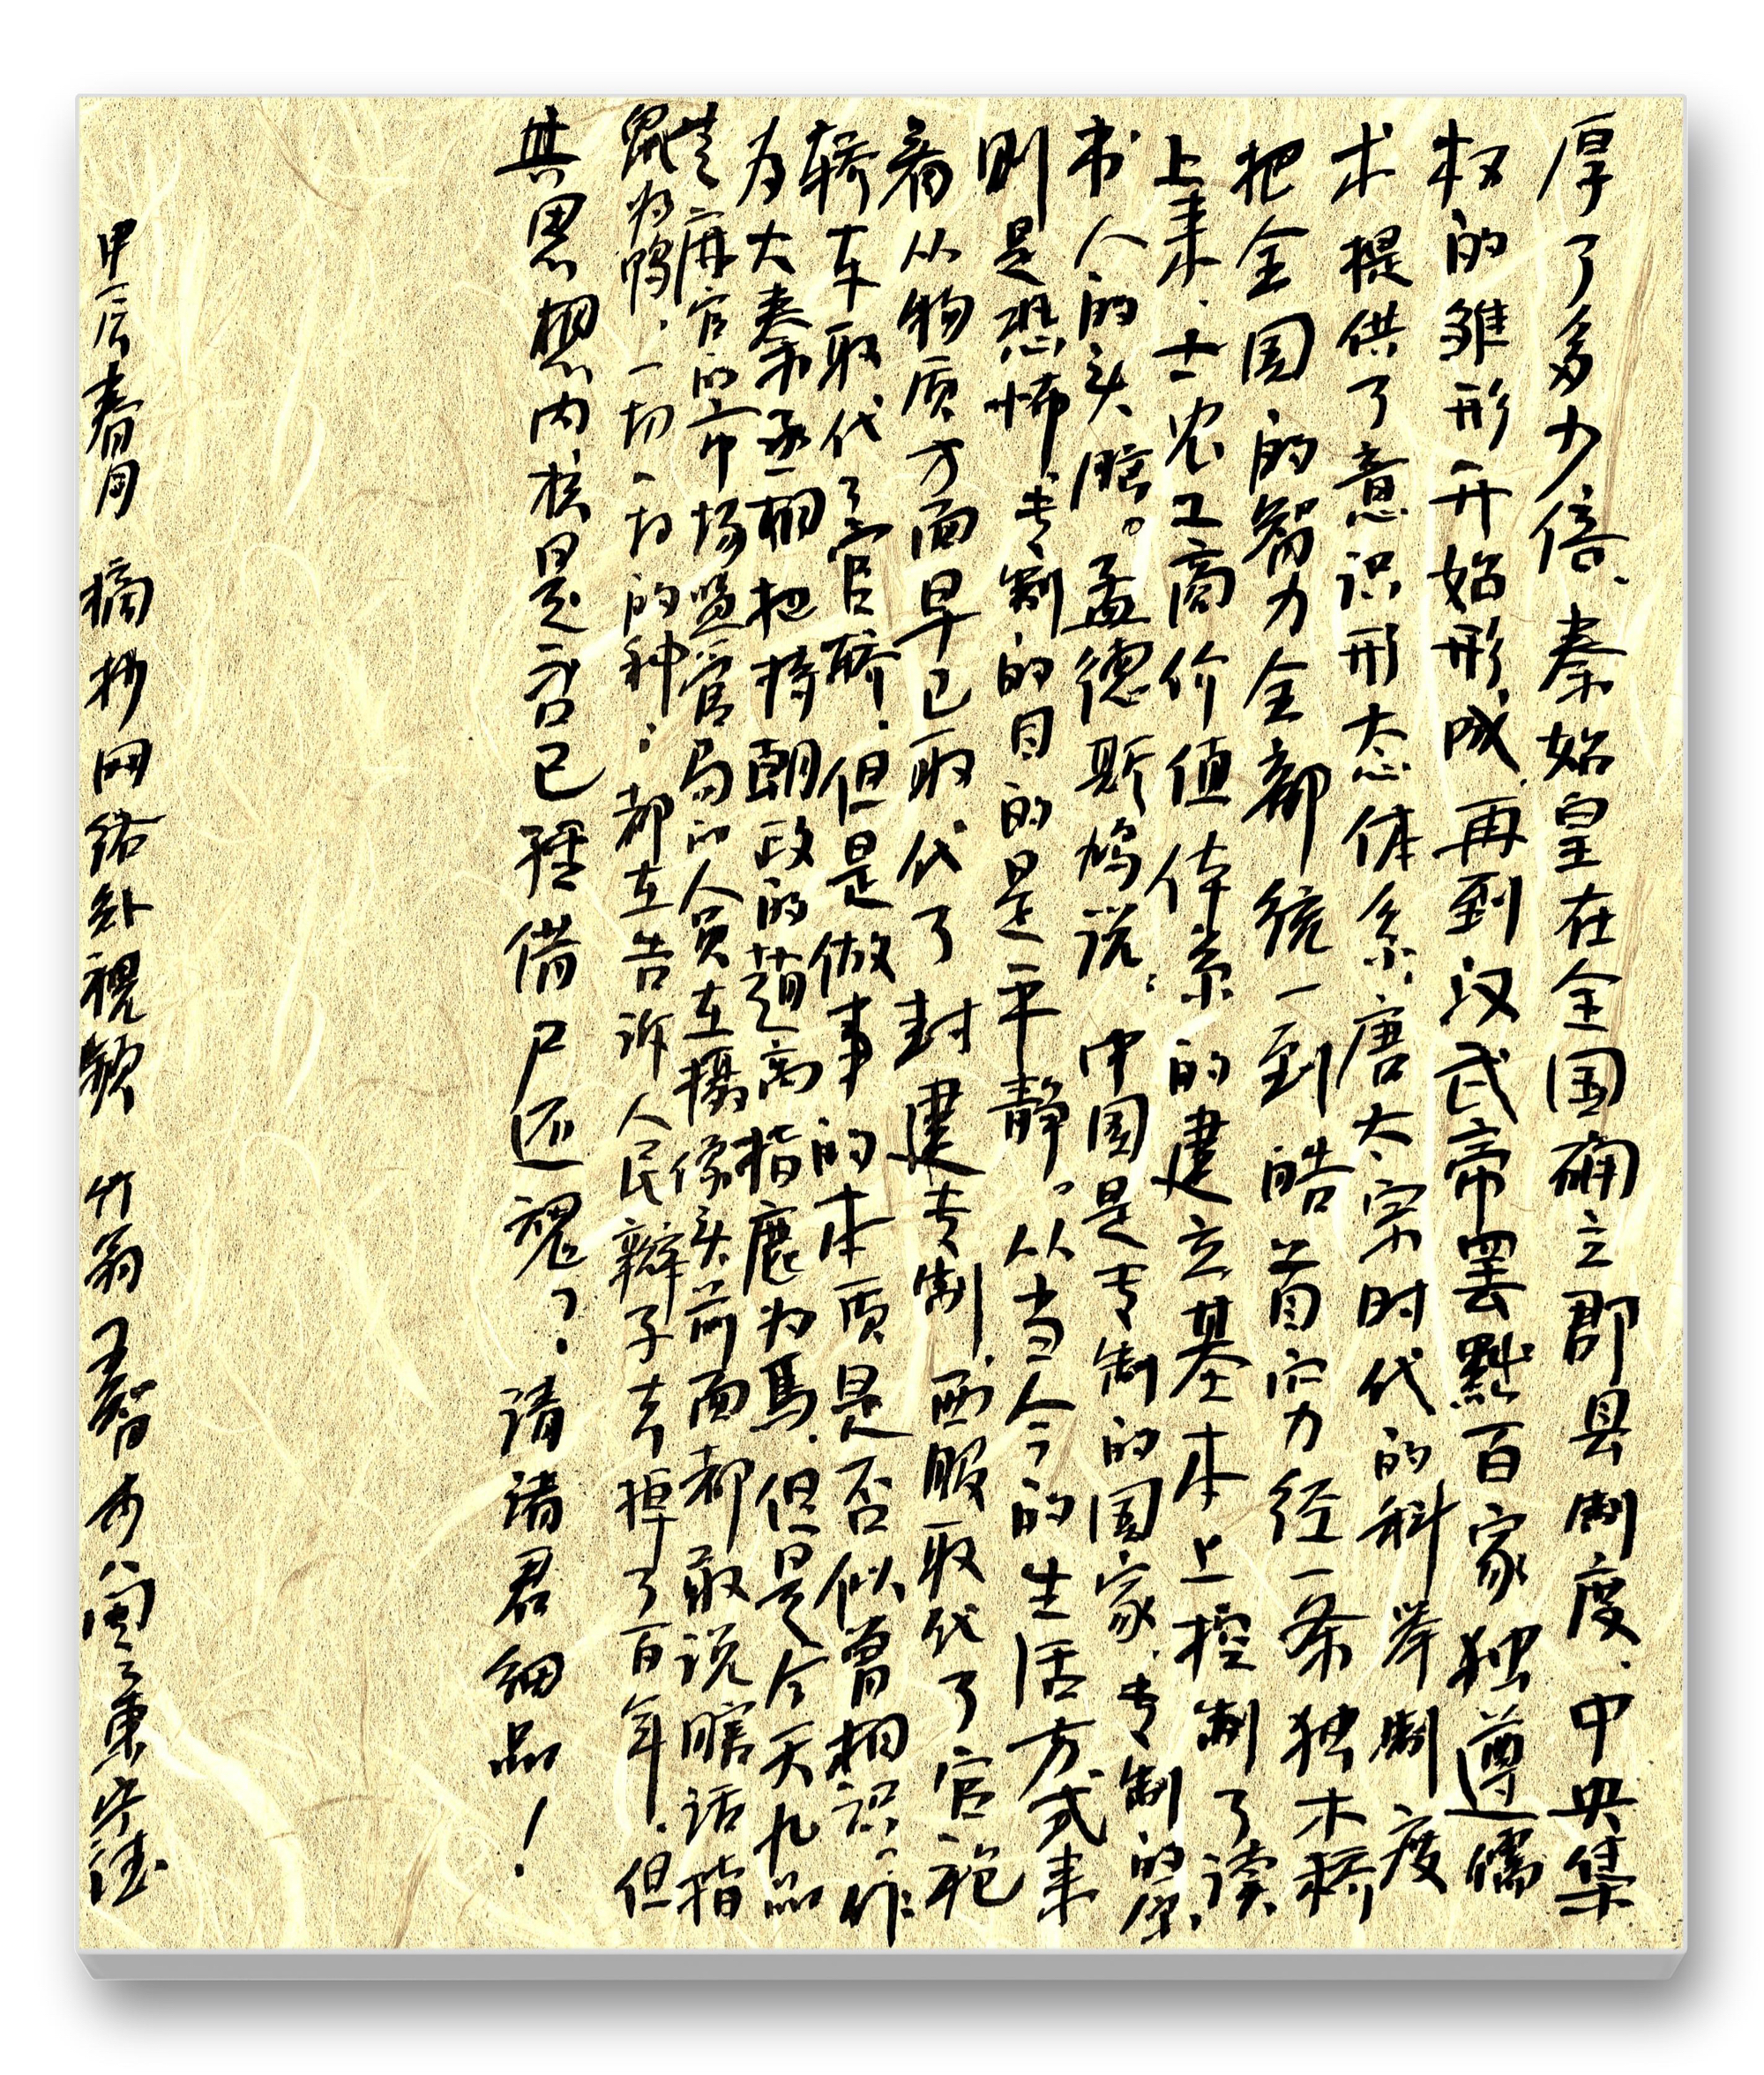 厚了多少倍、秦始皇在全国确立郡县制度、中央集
权的雏形开始形成、再到汉武帝罢黜百家独遵儒
术提供了意识形态体系、唐太宗时代的科举制度
把全国的智力全部统一到皓首穷经一条独木桥
上来、士农工商价值体系的建立基本上控制了读
书人的头脑。孟德斯鸠说：中国是专制的国家、专制的原
则是恐怖、专制的目的是平静。从当今的生活方式来
看从物质方面早已取代了封建专制、西服取代了官袍
轿车取代了官轿、但是做事的本质是否似曾相识。作
为大秦丞相把持朝政的赵高指鹿为馬、但是今天九品
芝麻官的市场监管局的人员在摄像头前面都敢说瞎话指
鼠为鸭、一切一切的种：都在告诉人民辫子去掉了百年、但
其思想内核是否已经借尸还魂？：请诸君细品！
甲辰春月 摘抄网络卦視频 竹翁王智书八闽之东宁德